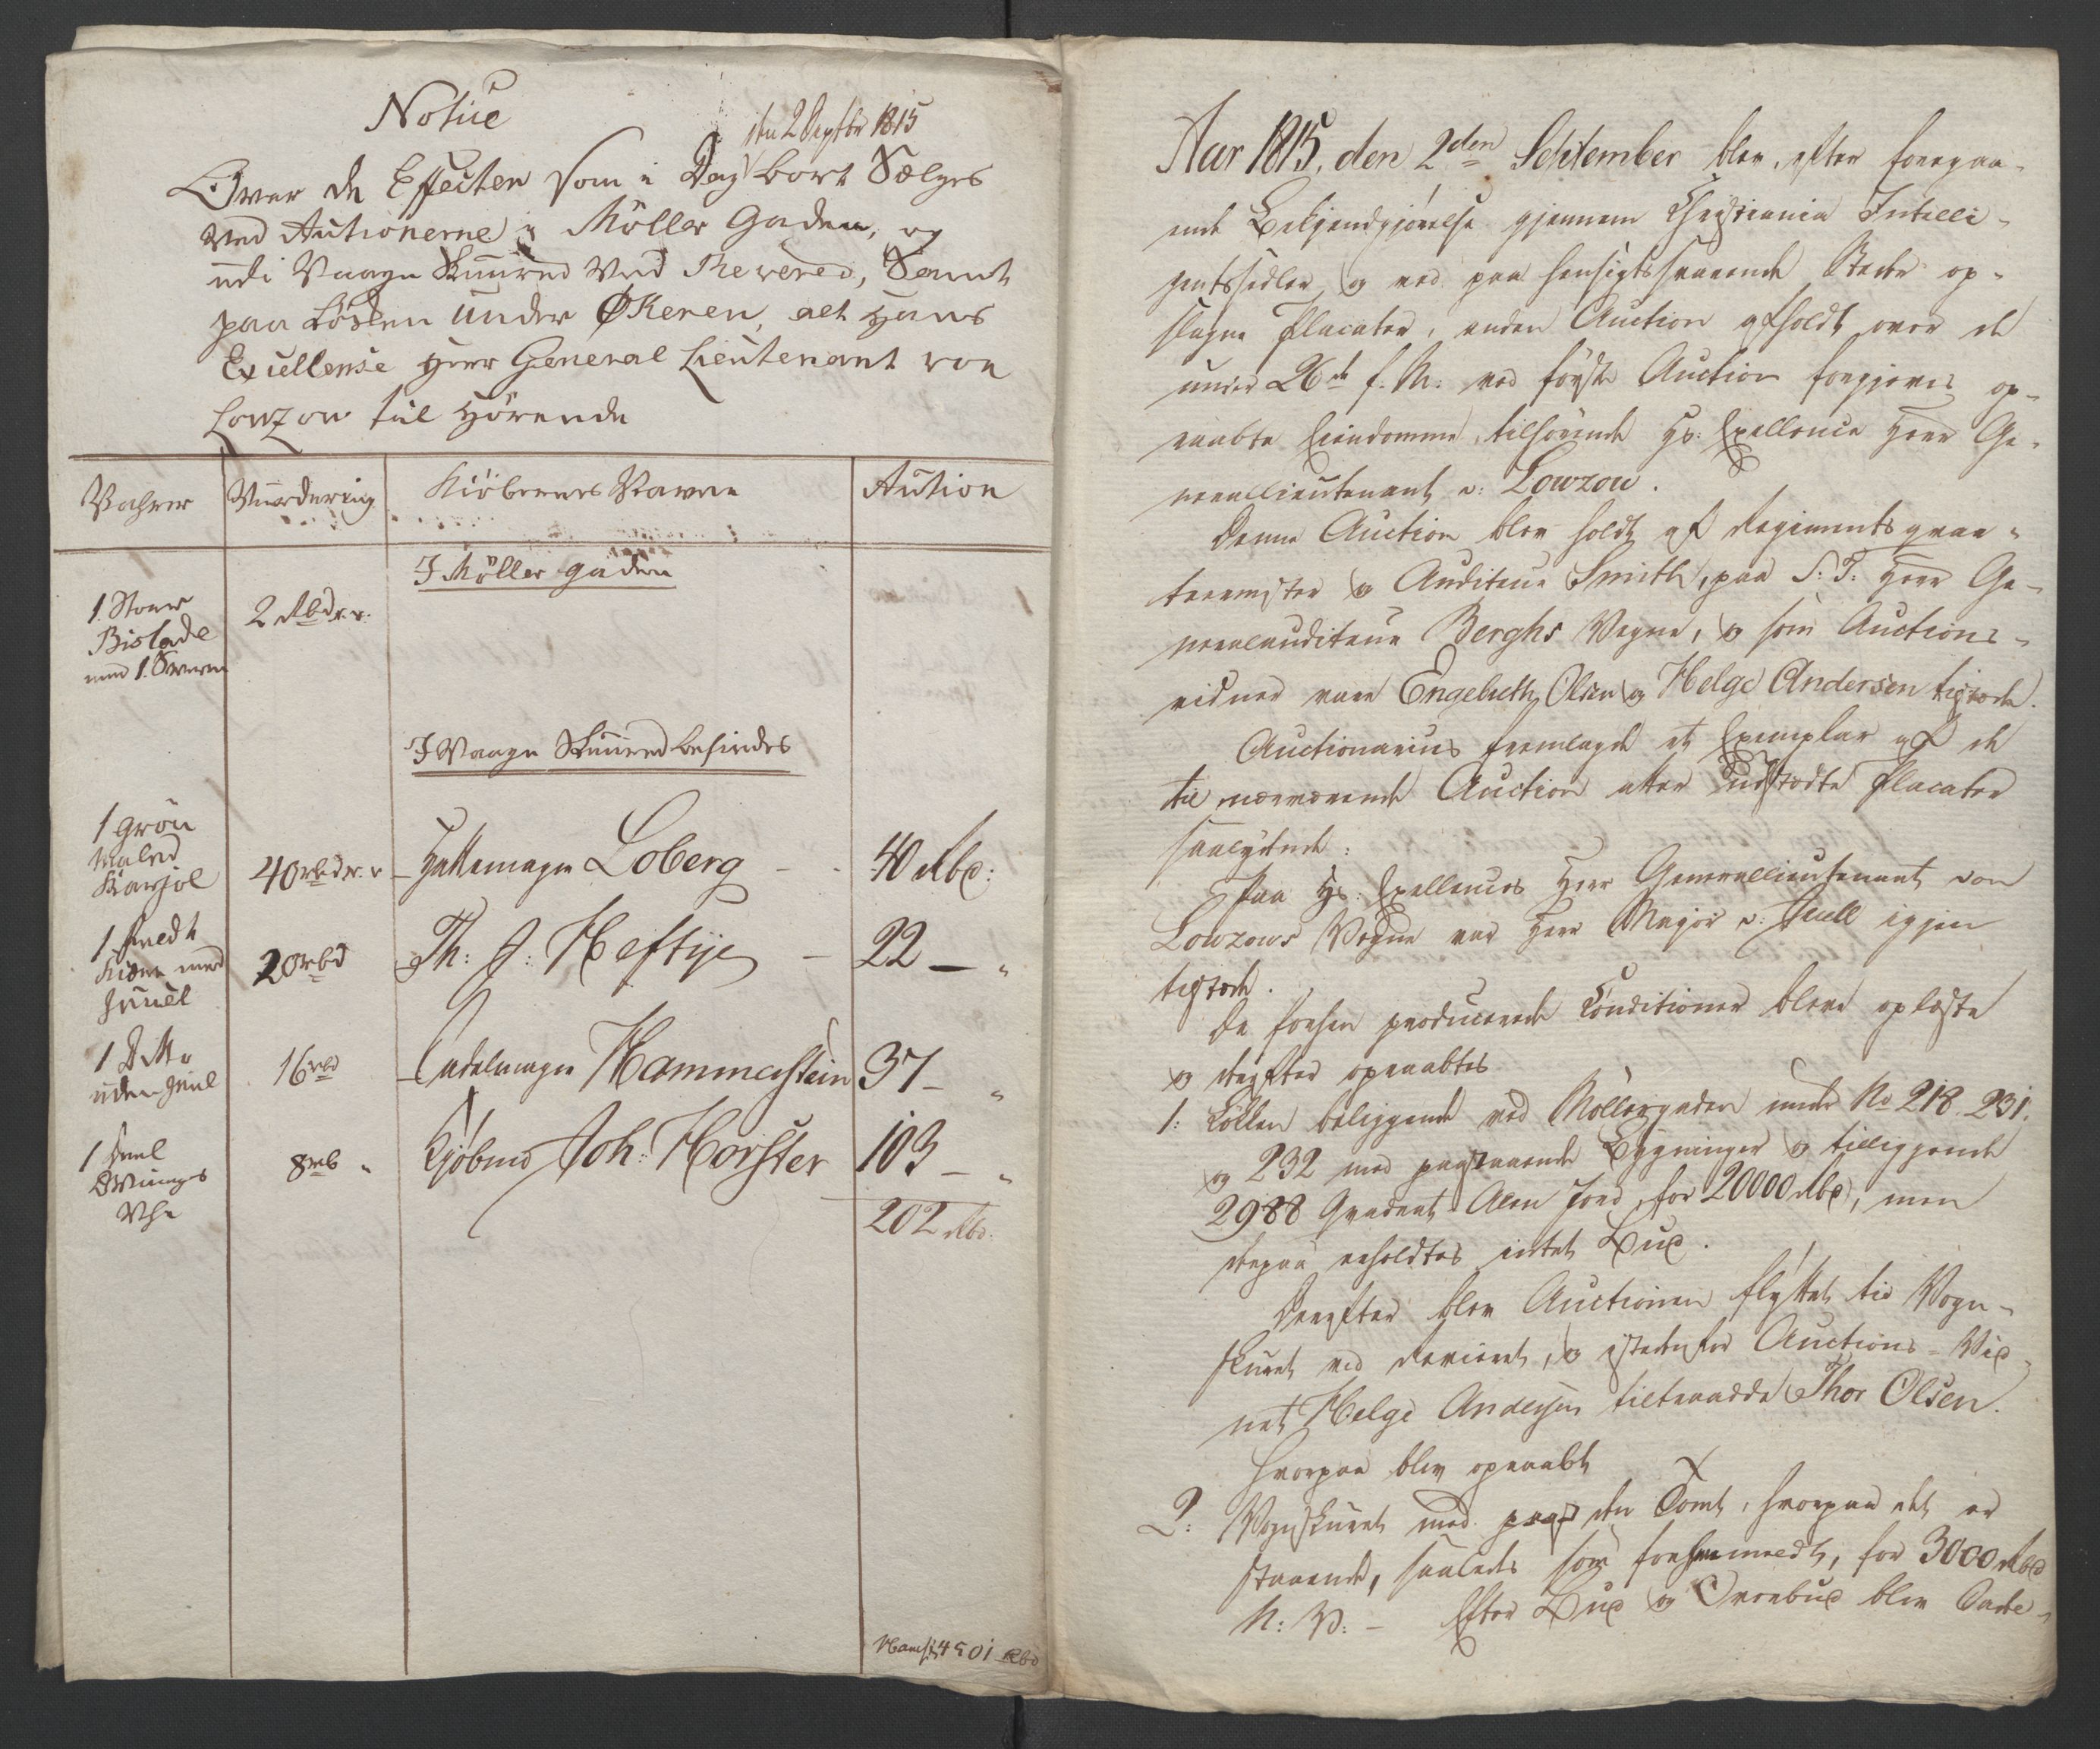 Notice
den 2 Septbr 1815
Over de Effecter som i Dag bort Sælges
ved Autionerne i Möller Gaden, og
udi Vaagn Skuured ved Revered, Samt
paa Løkken under ØKeren, alt Hans
Excellense Herr General Lieutenant von
Lowzow til Hörende
Vahrer
Vuordering
Kiöbernes Navne
Aution
I Möller gaden
1 Stoer
Bistade
med 1. Sverm
2 Rbd r. v.
I Vaagn Skuured befindes
1 Grön
Maled
Karjol
40 rbd r. v
Hattemager Loberg
40 Rbd:
1 bredt
Kiærre med
Hiuul
20 rbd
Th: J: Heftye
22 — "
1 Ditto
uden Hiul
16 rbd
Sadelmager Hammerstein
37 — "
1 Huel
Tvunges
Vhn
8 rb "
Kjöbmd Joh: Horster
103 — "
202 Rbd.
4501 Rbd
Aar 1815, den 2den September blev, efter foregaa-
ende Bekjendgjörelse gjennem Christiania Intelli-
gentssedler og ved paa hensigtssvarende Steder op-
slagne Placater, anden Auction afholdt over de
under 26de f. M. ved förste Auction forgjeves op-
raabte Eiendomme, tilhörende Hs. Exellence Herr Ge-
nerallieutenant v: Lowzow.
Denne Auction blev holdt af Regimentsqvar-
teermester og Auditeur Smith, paa S: T: Herr Ge-
neralauditeur Berghs Vegne, og som Auctions-
vidner vare Engebreth Olsen og Helge Andersen tilstede.
Auctionarius fremlagde et Exemplar af de
til nærværende Auction atter udstædte Placater
saalydende:
Paa Hs: Exellences Herr Generallieutenant von
Lowzows Vegne var Herr Major v: Juell igjen
tilstede.
De forhen producerede Conditioner bleve oplæste
og derefter opraabtes
1: Lökken beliggende ved Möllergaden under No 218. 231.
og 232 med paastaaende Bygninger og tilliggende
2988 Qvadrat Alen Jord, for 20000 Rbd, men
derpaa erholdtes intet Bud.
Derefter blev Auctionen flyttet til Vogn-
skuret ved Revieret, og istedenfor Auctions-Vid-
net Helge Andersen tiltraadde Thor Olsen.
Hvorpaa blev opraabt
2: Vognskuret med den Tomt, hvorpaa det er
staaende, saaledes som forhen meldt, for 3000 Rbd
N: V: — Efter Bud og Overbud blev Cade-